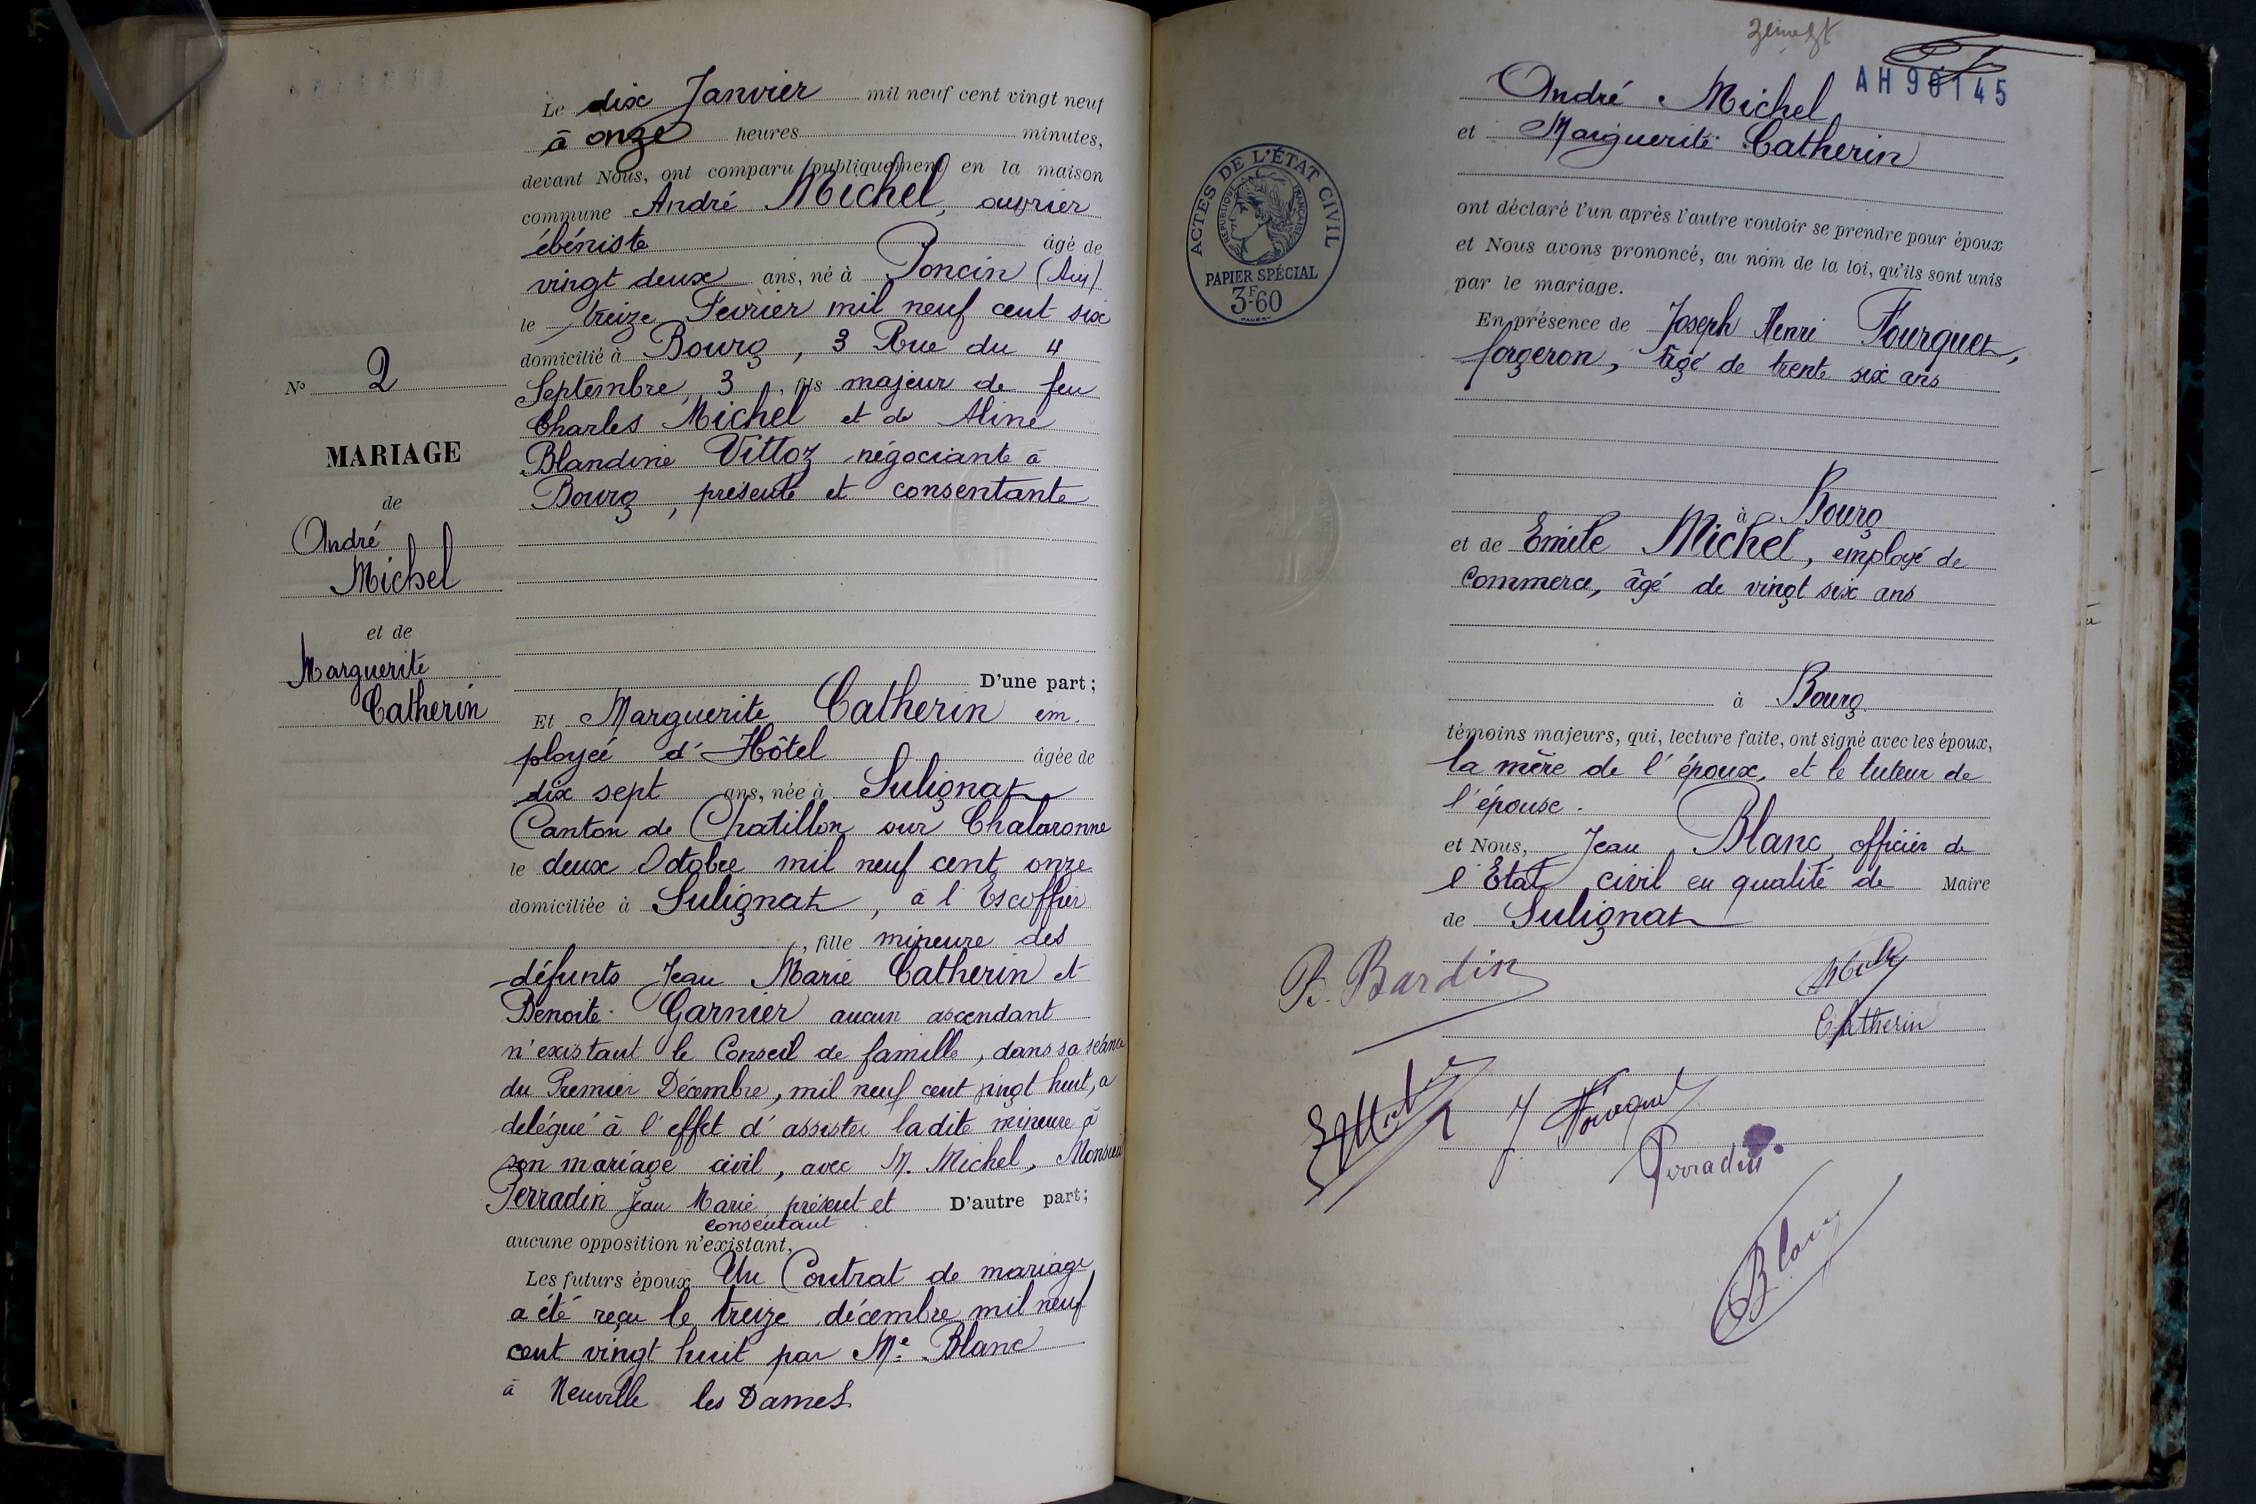 Le dix Janvier mil neuf cent vingt neuf
à onze heures minutes,
devant Nous, ont comparu publiquement en la maison
commune André Michel, ouvrier
ébéniste âgé de
vingt deux ans, né à Poncin (Ain)
le treize Fevrier mil neuf cent six
domicilié à Bourg, 3 Rue du 4
Septembre, 3, fils majeur de feu
Charles Michel et de Aline
Blandine Vittoz négociante à
Bourg, présente et consentante
D'une part;
Nº 2
MARIAGE
de
André
Michel
et de
Marguerite
Catherin
Et Marguerite Catherin em-
ployée d'Hôtel âgée de
dix sept ans, née à Sulignat
Canton de Chatillon sur Chalaronne
le deux Octobre mil neuf cent onze
domiciliée à Sulignat, à l'Escoffier
, fille mineure des
défunts Jean Marie Catherin et
Benoite Garnier aucun ascendant
n'existant le Conseil de famille, dans sa séance
du Premier Décembre, mil neuf cent vingt huit, a
délégué à l'effet d'assister ladite mineure à
son mariage civil, avec M. Michel, Monsieur
Perradin Jean Marie présent et D'autre part;
consentant
aucune opposition n'existant,
Les futurs époux Un Contrat de mariage
a été reçu le treize décembre mil neuf
cent vingt huit par Me Blanc
à Neuville les Dames
AH 96145
André Michel
et Marguerite Catherin
ACTES DE L'ÉTAT CIVIL
RÉPUBLIQUE FRANÇAISE
PAPIER SPÉCIAL
3F.60
ont déclaré l'un après l'autre vouloir se prendre pour époux
et Nous avons prononcé, au nom de la loi, qu'ils sont unis
par le mariage.
En présence de Joseph Henri Fourquet,
forgeron, âgé de trente six ans
à Bourg
et de Emile Michel, employé de
commerce, âgé de vingt six ans
à Bourg
témoins majeurs, qui, lecture faite, ont signé avec les époux,
la mère de l'époux, et le tuteur de
l'épouse.
et Nous, Jean Blanc officier de
l'Etat civil en qualité de Maire
de Sulignat
B. Bardin
Catherin
J Fourquet
Perradin
Blanc